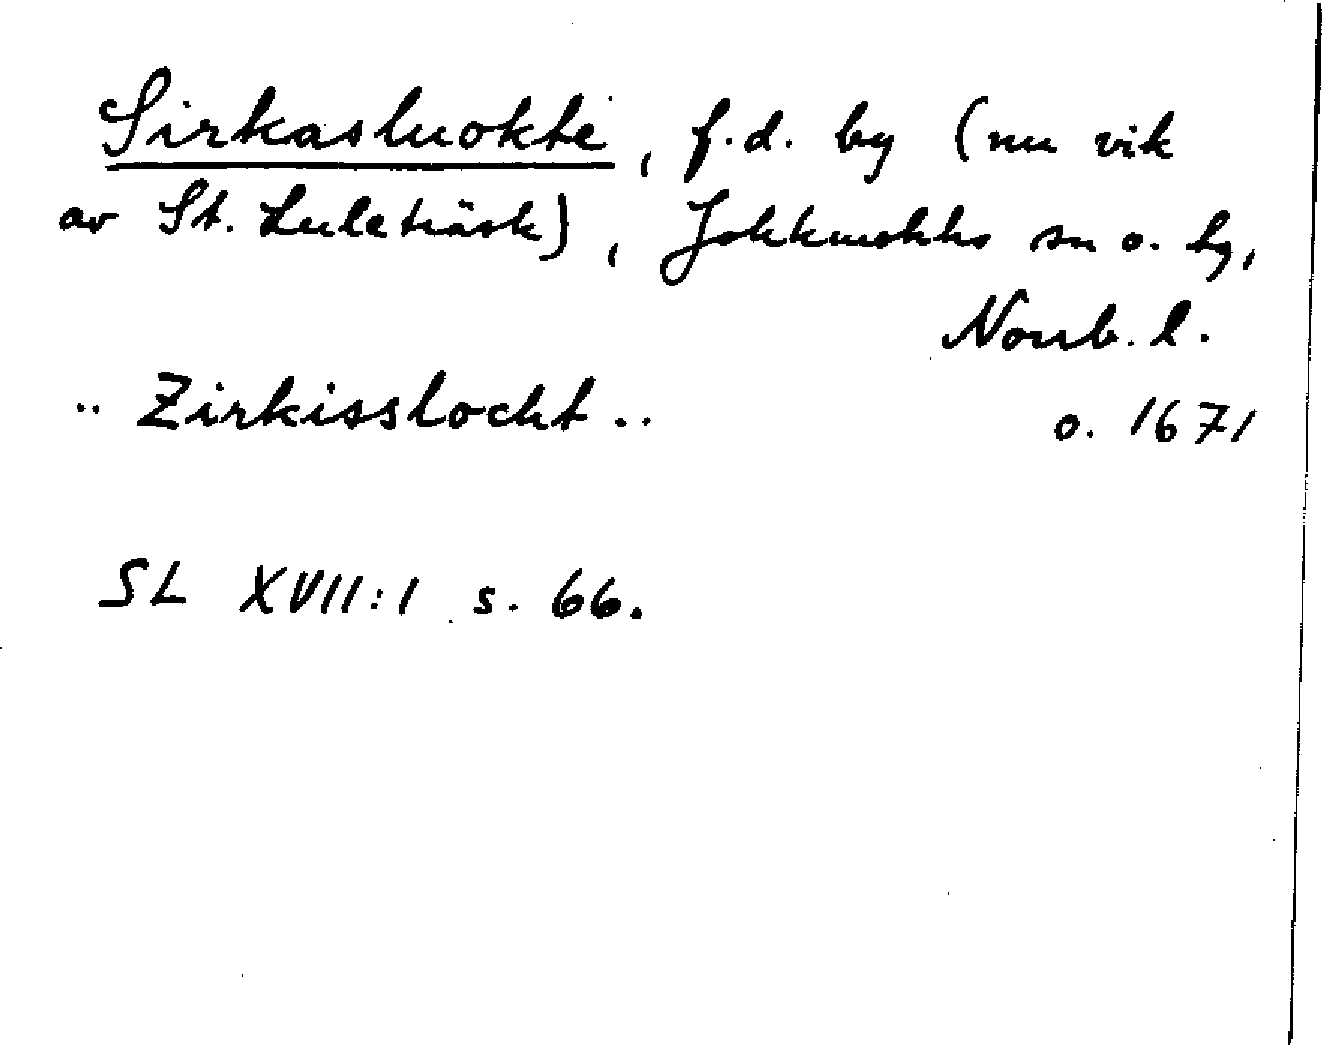 Sirkasluokte, f.d. by (nu vik
av St. Luleträsk), Jokkmokks sn o. by,
Norrb. l.
.. Zirkisslocht .. o. 1671
SL XVII:1 s. 66.